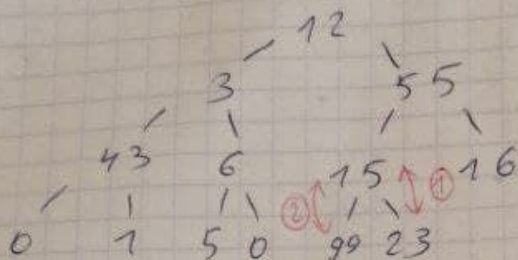 12
3 55
43 6 15 16
② ①
0 1 5 0 99 23